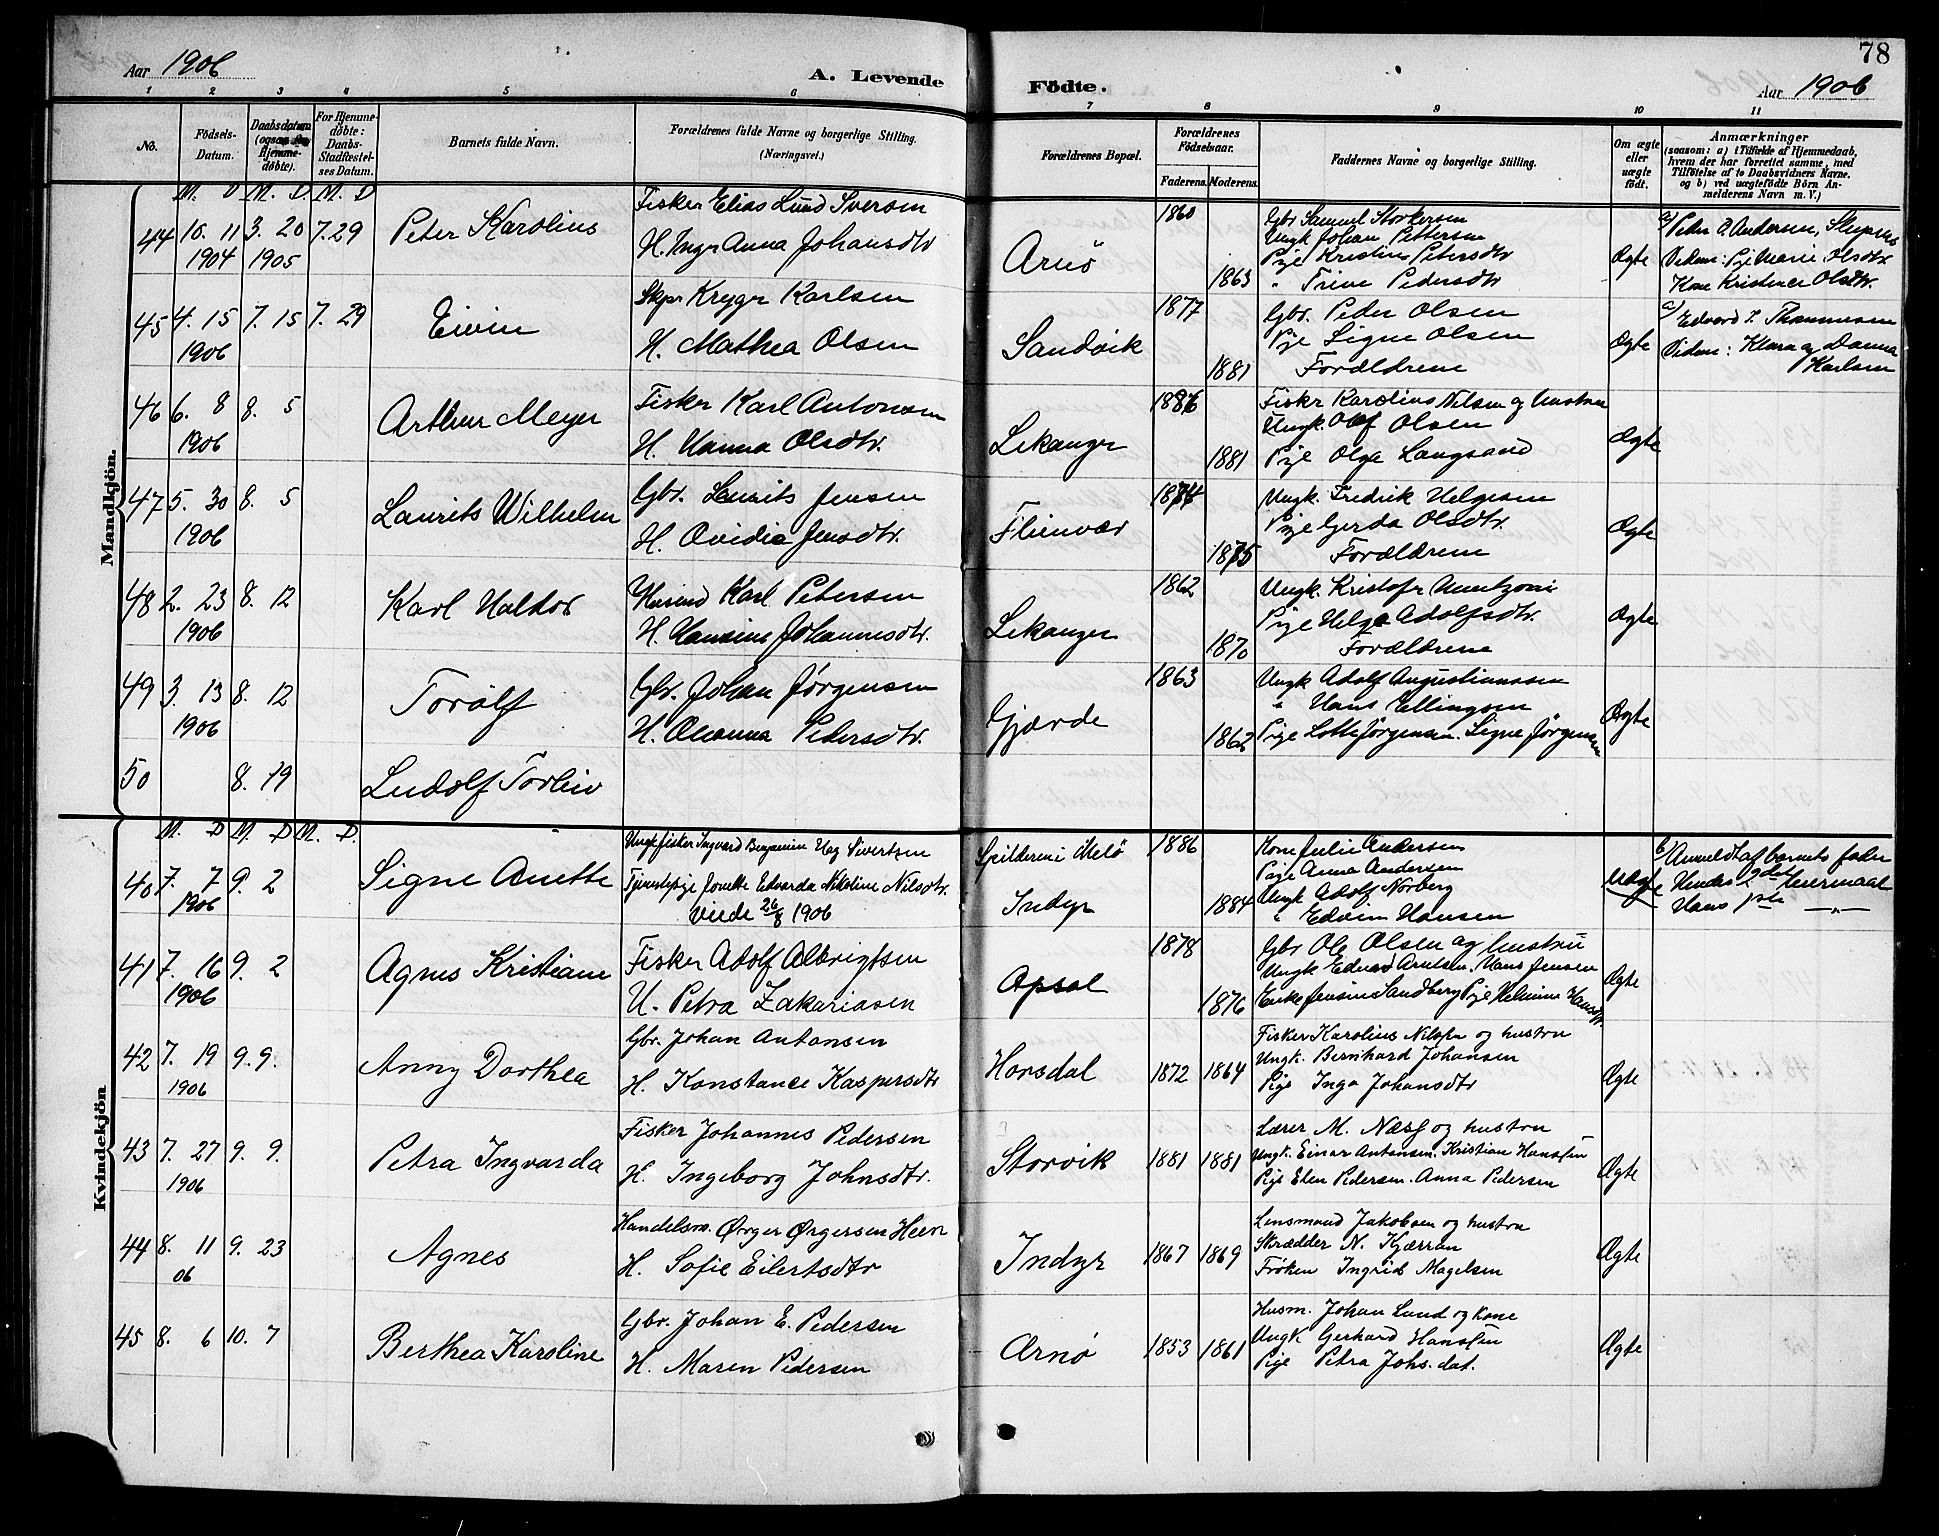 78
Aar 1906
A. Levende
Fødte.
Aar 1906
1 2 3 4 5 6 7 8 9 10 11
No.
Fødsels-Datum.
Daabsdatum (ogsaa for Hjemme-døbte).
For Hjemme-døbte: Daabs-Stadfæstel-ses Datum.
Barnets fulde Navn.
Forældrenes fulde Navne og borgerlige Stilling. (Næringsvei.)
Forældrenes Bopæl.
Forældrenes Fødselsaar.
Faderens. Moderens.
Faddernes Navne og borgerlige Stilling.
Om ægte eller uægte født.
Anmærkninger
(saasom: a) i Tilfælde af Hjemmedaab, hvem der har forrettet samme, med Tilføielse af to Daabsvidners Navne, og b) ved uægtefødte Børn An-melderens Navn m. V.)
Mandkjön.
M. D M. D. M. D
44 10. 11 1904 3. 20 1905 7. 29
Peter Karolius
Fisker Elias Lund Iversen
H. Ingr Anna Johansdtr
Arnö
1860
1863
Gbr Samuel Storkersen
Ungk Johan Pettersen
Pige Kristine Petersdtr
" Trine Pedersdtr
Ægte
a) Peder A. Andersen,
Vidner: Pige Marie Olsdtr.
Kone Kristence Olsdtr.
45 4. 15 1906 7. 15 7. 29
Eivin
Skpr Krygr Karlsen
H. Mathea Olsen
Sandvik
1877
1881
Gbr. Peder Olsen
Pge Signe Olsen
Forældrene
Ægte
a) Edvard P. Thommesen
Vidner: Klara og Danna
Karlsen
46 6. 8 1906 8. 5
Arthur Meyer
Fisker Karl Antonsen
H. Hanna Olsdtr.
Lekanger
1881
Fiskr Karolius Nilsen og hustru
Ungk. Olaf Olsen
Pige Olga Langsand
Ægte
47 5. 30 1906 8. 5
Laurits Wilhelm
Gbr. Laurits Jensen
H. Ovidie Jensdtr.
Fleinvær
1874
1875
Ungk. Fredrik Helgesen
Pige Gerda Olsdtr.
Forældrene
Ægte
48 2. 23 1906 8. 12
Karl Haldor
Husmd Karl Petersen
H. Hansine Johannesdtr.
Lekanger
1862
1870
Ungk. Kristofr
Pige Helga Adolfsdtr.
Forældrene
Ægte
49 3. 13 1906 8. 12
Torolf
Gbr. Johan Jørgensen
H. Oleanna Pedersdtr.
Gjærde
1863
1862
Ungk Adolf Augustianssen
" Hans Ellingsen
Pige Lotte Jørgensen. Signe Jørgensen
Ægte
50 8. 19
Ludolf Torleiv
Kvindekjön
M. D M. D M. D.
40 7. 7 1906 9. 2
Signe Anette
Ungk fisker Ingvard Benjamin Hag Sivertsen
Tjenestepige Jonette Edvarda Nikoline Nilsdtr.
Viede 26/8 1906
Spilderen i Melö
Indyr
1886
1884
Kone Julie Andersen
Pige Anna Andersen
Ungk Adolf Norberg
" Edvin Hansen
Uægte
b) Anmeldt af barnets fader
Hendes 2det leiermaal
Hans 1ste — " —
41 7. 16 1906 9. 2
Agnes Kristiane
Fisker Adolf Albrigtsen
H. Petra Zakariasen
Opsal
1878
1876
Gbr Ole Olsen og hustru
Ungk Edvard Arntsen. Hans Jensen
Enke Jensine Sandberg Pige Helmine Hansdtr.
Ægte
42 7. 19 1906 9. 9.
Anny Dorthea
Gbr. Johan Antonsen
H. Konstance Kaspersdtr
Horsdal
1872 1864
Fisker Karolius Nilsen og hustru
Ungk. Bernhard Johansen
Pige Inga Johansdtr
Ægte
43 7. 27 1906 9. 9.
Petra Ingvarda
Fisker Johannes Pedersen
H. Ingeborg Johnsdtr.
Storvik
1881 1881
Lærer M. Næss og hustru
Ungk. Einar Antonsen. Kristian Hansen
Pige Elen Pedersen. Anna Pedersen
Ægte
44 8. 11 06 9. 23
Agnes
Handelsm. Ørger Ørgersen Heen
H. Sofie Eilertsdtr
Indyr
1867 1869
Lensmand Jakobsen og hustru
Skrædder N. Kjærran
Frøken Ingrid Magelsen
Ægte
45 8. 6 10. 7
Berthea Karoline
Gbr. Johan E. Pedersen
H. Maren Pedersen
Arnø
1853 1861
Husm. Johan Lund og kone
Ungk Gerhard Hansen
Pige Petra Johs. dat.
Ægte